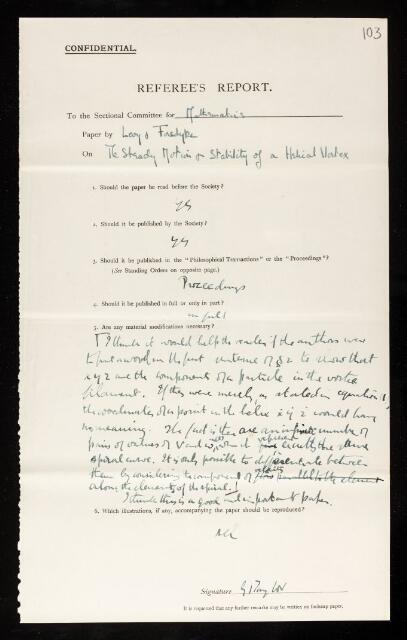 103
CONFIDENTIAL.
REFEREE'S REPORT.
To the Sectional Committee for Mathematics
Paper by Levy & Forsdyke
On The Steady Motion & Stability of a Helical Vortex
1. Should the paper be read before the Society?
yes
2. Should it be published by the Society?
yes
3. Should it be published in the "Philosophical Transactions" or the "Proceedings"?
(See Standing Orders on opposite page.)
Proceedings
4. Should it be published in full or only in part?
in full
5. Are any material modifications necessary?
I think it would help the reader if the authors were
to put a word in the first sentence of § 2 to show that
x y z are the components of a particle in the vortex
filament. If they were merely, as stated in equation 1,
the coordinates of a point in the helix x y z would have
no meaning. The fact is there are an infinite number of
pairs of values of V and w which represent exactly the same
spiral curve. It is only possible to differentiate between
them by considering the component of parallel to the element
along the elements of the spiral.
I think this is a good and important paper.
6. Which illustrations, if any, accompanying the paper should be reproduced?
All
Signature G I Taylor
It is requested that any further remarks may be written on foolscap paper.